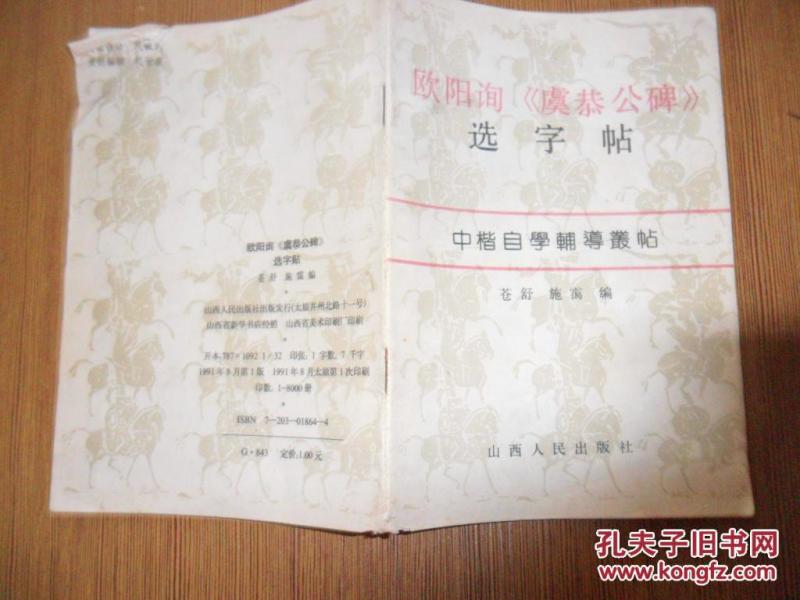 欧阳询《虞恭公碑》
选字帖
中楷自學輔導叢帖
苍舒 施霭 编
山西人民出版社
欧阳询《虞恭公碑》
选字帖
苍舒 施霭编
山西人民出版社出版发行(太原并州北路十一号)
山西省新华书店经销 山西省美术印刷厂印刷
开本:787×1092 1/32 印张:1 字数:7千字
1991年8月第1版 1991年8月太原第1次印刷
印数:1-8000册
ISBN 7-203-01864-4
G·843 定价:1.00元
孔夫子旧书网
www.kongfz.com